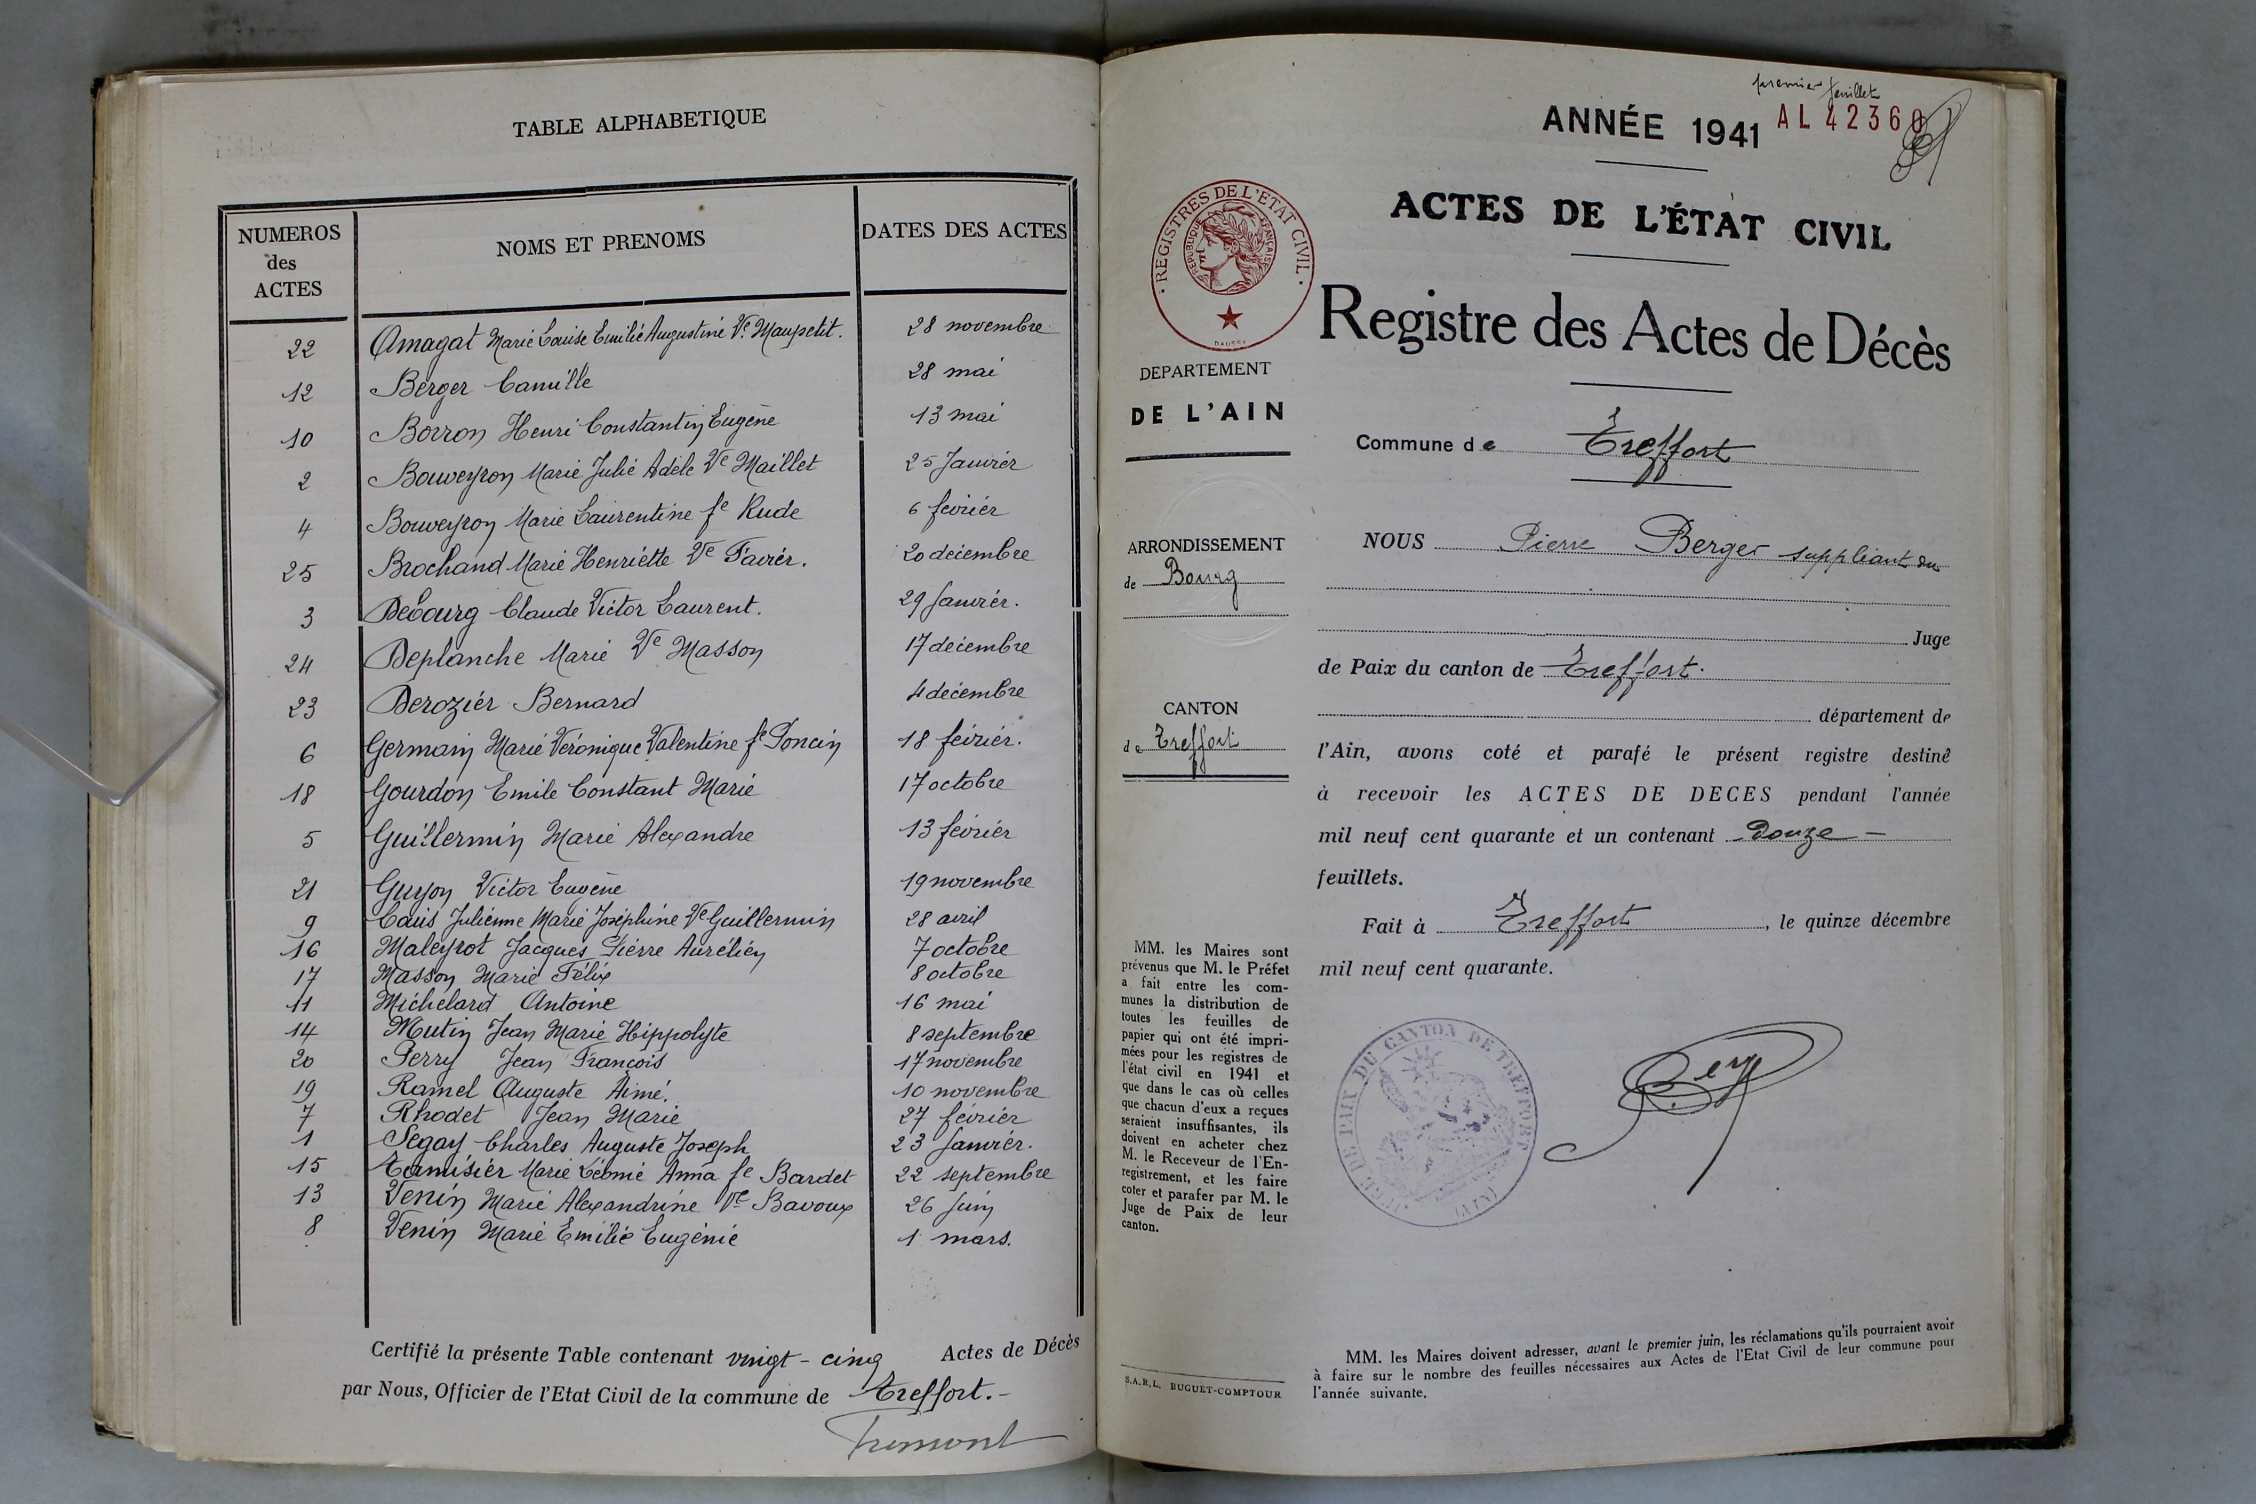 TABLE ALPHABETIQUE
NUMEROS des ACTES NOMS ET PRENOMS DATES DES ACTES
22 Amagat Marie Louise Emilie Augustine Ve Maupetit. 28 novembre
12 Berger Camille 28 mai
10 Borron Henri Constantin Eugène 13 mai
2 Bouveyron Marie Julie Adèle Ve Maillet 25 Janvier
4 Bouveyron Marie Laurentine fe Rude 6 février
25 Brochand Marie Henriette Ve Favier. 20 décembre
3 Debourg Claude Victor Laurent. 29 Janvier.
24 Deplanche Marie Ve Masson 17 décembre
23 Derozier Bernard 4 décembre
6 Germain Marie Véronique Valentine fe Poncin 18 février.
18 Gourdon Emile Constant Marie 17 octobre
5 Guillermin Marie Alexandre 13 février
21 Guyon Victor Eugène 19 novembre
9 Julienne Marie Joséphine Ve Guillermin 28 avril
16 Maleyrot Jacques Pierre Aurélien 7 octobre
17 Masson Marie Félix 8 octobre
11 Michelard Antoine 16 mai
14 Mutin Jean Marie Hippolyte 8 septembre
20 Perry Jean François 17 novembre
19 Ramel Auguste Aimé. 10 novembre
7 Rhodet Jean Marie 27 février
1 Segay Charles Auguste Joseph 23 Janvier.
15 Tamisier Marie Léonie Anna fe Bardet 22 septembre
13 Venin Marie Alexandrine Ve Bavoux 26 Juin
8 Venin Marie Emilie Eugénie 1 mars.
Certifié la présente Table contenant vingt-cinq Actes de Décès
par Nous, Officier de l'Etat Civil de la commune de Treffort.-
premier feuillet
ANNÉE 1941 AL 42360
REGISTRES DE L'ETAT CIVIL
REPUBLIQUE FRANÇAISE
DEPARTEMENT
DE L'AIN
ARRONDISSEMENT
de Bourg
CANTON
de Treffort
MM. les Maires sont
prévenus que M. le Préfet
a fait entre les com-
munes la distribution de
toutes les feuilles de
papier qui ont été impri-
mées pour les registres de
l'état civil en 1941 et
que dans le cas où celles
que chacun d'eux a reçues
seraient insuffisantes, ils
doivent en acheter chez
M. le Receveur de l'En-
registrement, et les faire
coter et parafer par M. le
Juge de Paix de leur
canton.
S.A.R.L. BUGUET-COMPTOUR
ACTES DE L'ÉTAT CIVIL
Registre des Actes de Décès
Commune de Treffort
NOUS Pierre Berger suppléant du
Juge
de Paix du canton de Treffort.
département de
l'Ain, avons coté et parafé le présent registre destiné
à recevoir les ACTES DE DECES pendant l'année
mil neuf cent quarante et un contenant Douze
feuillets.
Fait à Treffort, le quinze décembre
mil neuf cent quarante.
JUGE DE PAIX DU CANTON DE TREFFORT (AIN)
MM. les Maires doivent adresser, avant le premier juin, les réclamations qu'ils pourraient avoir
à faire sur le nombre des feuilles nécessaires aux Actes de l'Etat Civil de leur commune pour
l'année suivante.